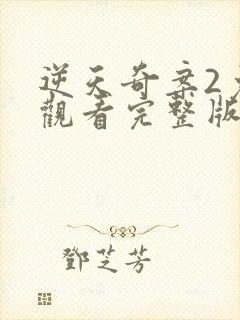 逆天奇案2免
觀看完整版
鄧芝芳